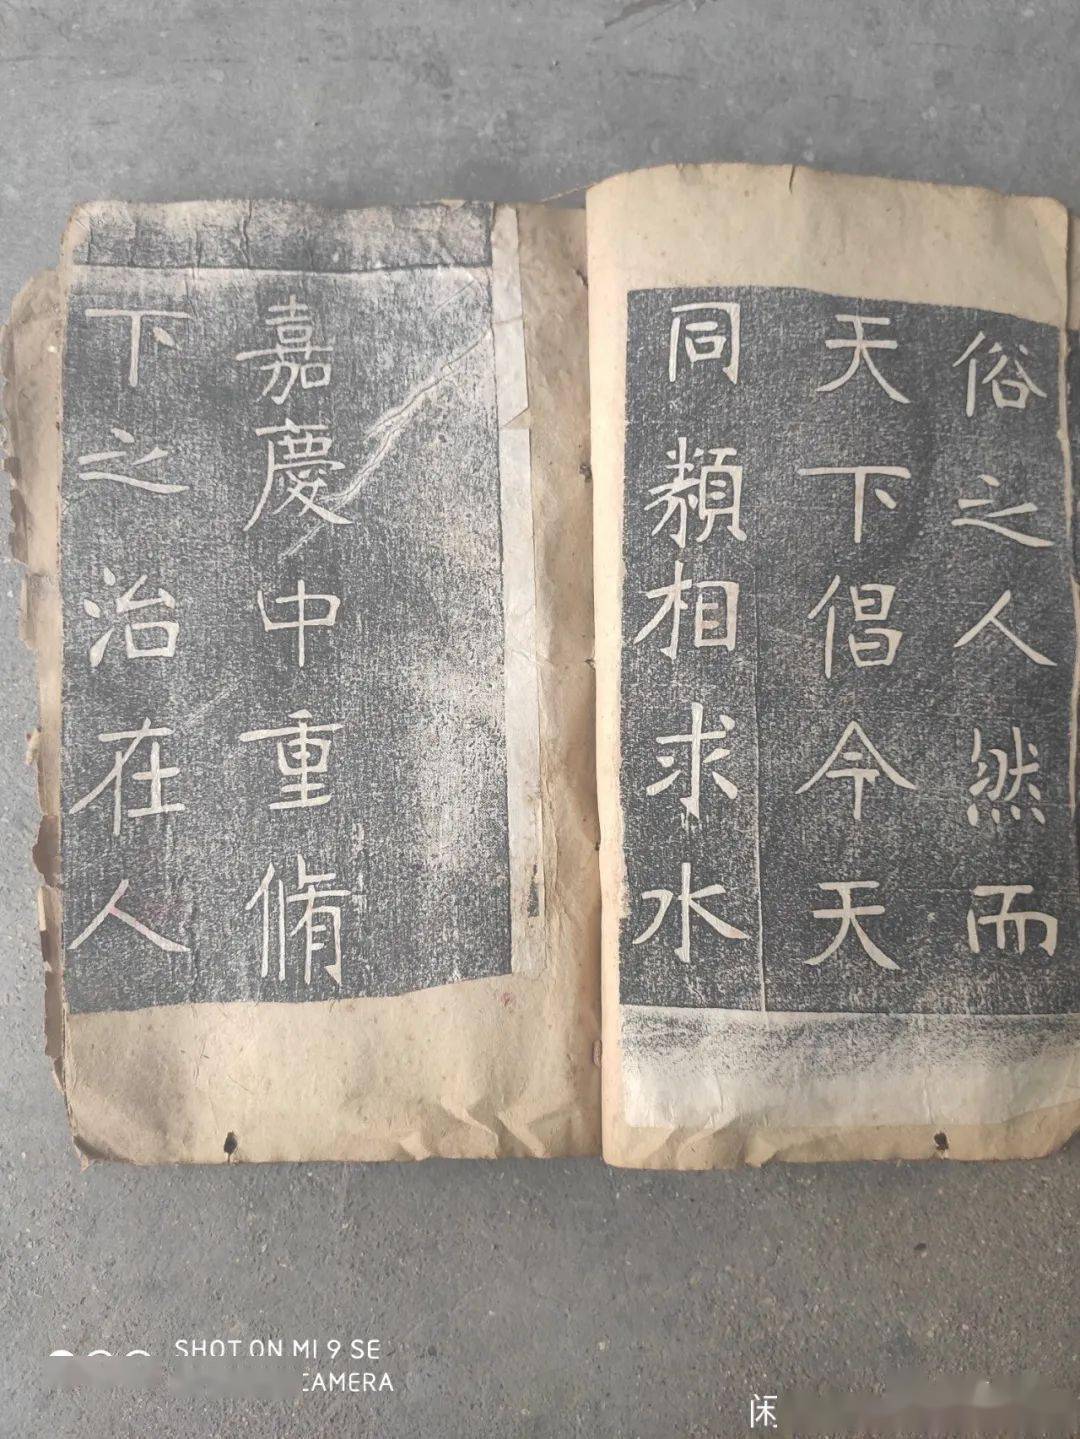 俗之人然而
天下倡今天
同類相求水
嘉慶中重脩
下之治在人
SHOT ON MI 9 SE
CAMERA
闲